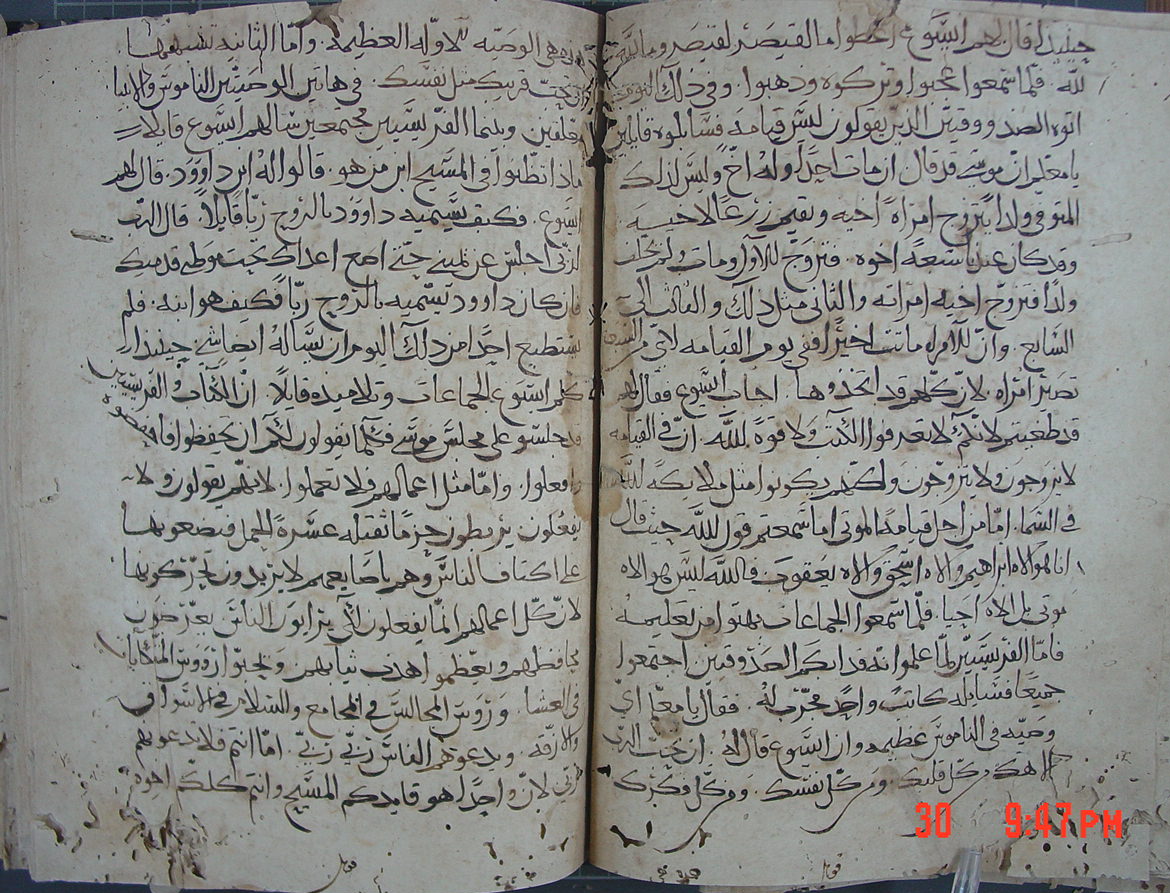 حينيذا قال لهم ايسوع اعطوا ما لقيصر لقيصر وما لله
لله . فلما سمعوا عجبوا وتركوه وذهبوا . وفي ذلك اليوم
اتوه الصدووقيين الذين يقولون ليس قيامه فسايلوه قايلين
يا معلم ان موسى قد قال ان مات احدًا وله اخ وليس لذلك
المتوفي ولدا يتزوج امراة اخيه ويقيم زرعًا لاخيه
وقد كان عندنا سبعة اخوه . فتزوج للاول ومات ولم يخلف
ولدًا فتزوج اخيه امراته والثاني مثل ذلك والثالث الى
السابع . وان للامراه ماتت اخيرًا ففي يوم القيامه لاي من السبعة
تصير امراه . لان كلهم قد اتخذوها . اجاب ايسوع فقال لهم
قد طغيتم لانكم لا تعرفوا الكتب ولا قوة لله . ان في القيامه
لا يزوجون ولا يتزوجون ولكنهم يكونوا مثل ملايكة لله
في السما . اما من اجل قيامة الموتى اما سمعتم قول لله حيث قال
انا هو الاه ابراهيم والاه اسحق والاه يعقوب فالله ليس هو الاه
موتى بل الاه احيا فلما سمعوا الجماعات بهتوا من تعليمه
فاما الفريسيين لما علموا انه قد ابكم الصدوقيين اجتمعوا
جميعًا فسايله كاتب واحد مجرب له . فقال يا معلم اي
وصيه في الناموس عظيمه وان ايسوع قال له . ان تحب الرب
الاهك من كل قلبك . ومن كل نفسك . ومن كل فكرك
هذه هي الوصيه لاوله العظيمه . واما الثانيه تشبهها
ان تحب قريبك مثل نفسك . في هاتين الوصيتين الناموس والانبيا
متعلقين . وبينما الفريسيين مجتمعين سالهم ايسوع قايلا
ماذا تظنوا في المسيح ابن من هو . قالوا له ابن داوود . قال لهم
ايسوع . فكيف يسميه داوود بالروح ربًا قايلاً . قال الرب
لربي اجلس عن يميني حتى اضع اعداك تحت موطي قدميك
فان كان داوود يسميه بالروح ربًا فكيف هو ابنه . فلم
يستطيع احدًا من ذلك اليوم ان يساله ايضا شي حينيذا
كلم ايسوع الجماعات وتلاميذه قايلاً . ان الكتاب والفريسيين
قد جلسوا على مجلس موسى فكلما يقولون لكم ان تحفظوا فاحفظوه
وافعلوا . واما مثل اعمالهم فلا تعملوا . لانهم يقولون ولا
يفعلون يربطون حزمًا ثقيله عسرة الحمل فيضعوها
على اكتاف الناس وهم باصابعهم لا يريدون تحركوها
لان كل اعمالهم انما يفعلون لكي يرايون الناس يعرضون
محافظهم ويعظموا اهداب ثيابهم ويحبوا روس المتكات
في العشا . وروس المجالس في المجامع والسلام في الاسواق
والازقه . ويدعوهم الناس ربي ربي . اما انتم فلا تدعوهم
ربي لان واحدًا هو قايدكم المسيح وانتم كلكم اخوه
30 9:47 PM